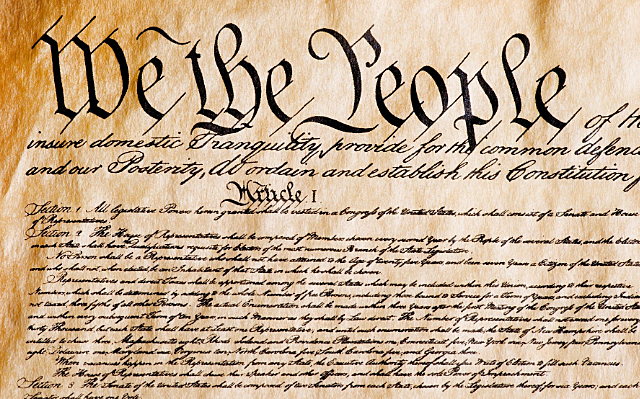 We the People of the
insure domestic Tranquility, provide for the common defence
and our Posterity, do ordain and establish this Constitution f
Article I
Section 1 All legislative Powers herein granted shall be vested in a Congress of the United States, which shall consist of a Senate and House
of Representatives.
Section 2 The House of Representatives shall be composed of Members chosen every second Year by the People of the several States, and the
in each State shall have Qualifications requisite for Electors of the most numerous Branch of the State Legislature.
No Person shall be a Representative who shall not have attained to the Age of twenty five Years and been seven Years a Citizen of the United States
and who shall not, when elected, be an Inhabitant of that State in which he shall be chosen.
Representatives and direct Taxes shall be apportioned among the several States which may be included within this Union, according to their respective
Numbers, which shall be determined by adding to the whole Number of free Persons, including those bound to Service for a Term of Years, and excluding Indians
not taxed, three fifths of all other Persons. The actual Enumeration shall be made within three Years after the first Meeting of the Congress of the United States
and within every subsequent Term of ten Years, in such Manner as they shall by Law direct. The Number of Representatives shall not exceed one for every
thirty Thousand, but each State shall have at Least one Representative, and until such enumeration shall be made, the State of New Hampshire shall be
entitled to chuse three, Massachusetts eight, Rhode Island and Providence Plantations one, Connecticut five, New York six, New Jersey four, Pennsylvania
eight, Delaware one, Maryland six, Virginia ten, North Carolina five, South Carolina five, and Georgia three.
When vacancies happen in the Representation from any State, the Executive Authority thereof shall issue Writs of Election to fill such Vacancies.
The House of Representatives shall chuse their Speaker and other Officers, and shall have the sole Power of Impeachment.
Section 3 The Senate of the United States shall be composed of two Senators from each State, chosen by the Legislature thereof for six Years; and each
Senator shall have one Vote.